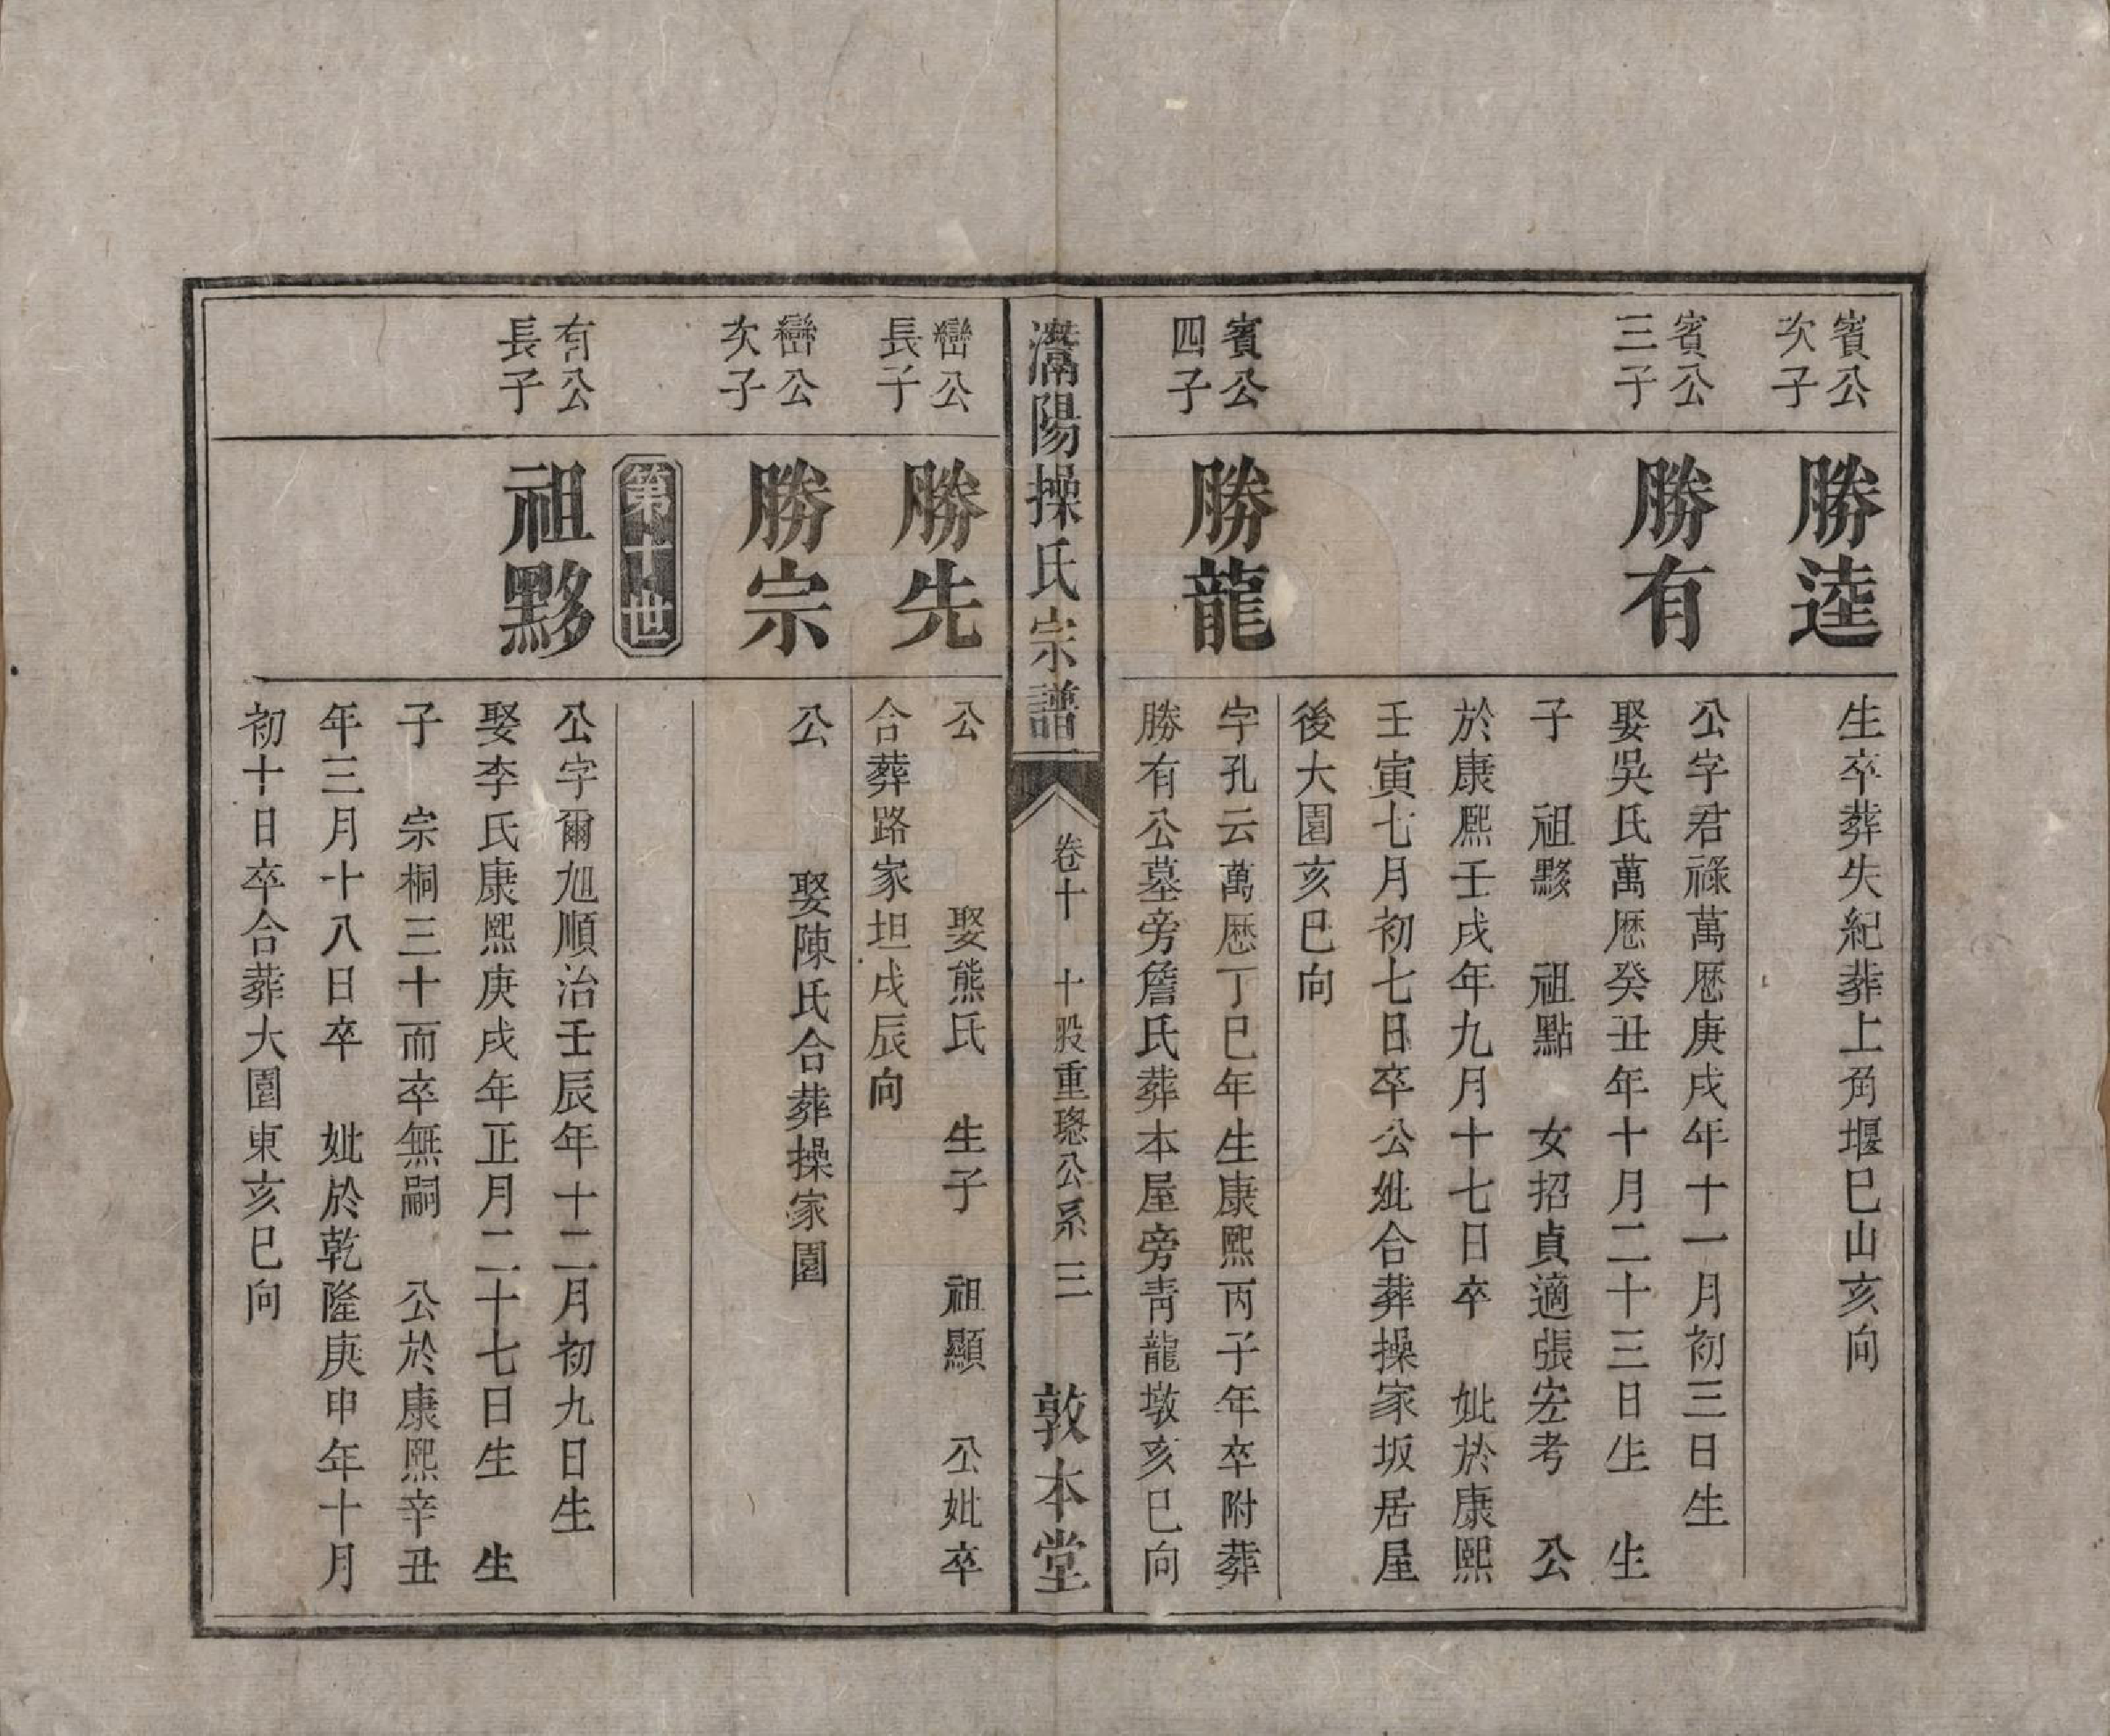 賓公
次子
勝逵
生卒葬失紀葬上角堰巳山亥向
賓公
三子
勝有
公字君祿萬歷庚戌年十一月初三日生
娶吳氏萬歷癸丑年十月二十三日生　生
子　祖黟　祖點　女招貞適張宏考　公
於康熙壬戌年九月十七日卒　妣於康熙
壬寅七月初七日卒公妣合葬操家坂居屋
後大園亥巳向
賓公
四子
勝龍
字孔云萬歷丁巳年生康熙丙子年卒附葬
勝有公墓旁詹氏葬本屋旁靑龍墩亥巳向
鄱陽操氏宗譜
卷十　十股重璁公系　三
敦本堂
巒公
長子
勝先
公　娶熊氏　生子　祖顯　公妣卒
合葬路家坦戌辰向
巒公
次子
勝宗
公　娶陳氏合葬操家園
第十世
有公
長子
祖黟
公字爾旭順治壬辰年十二月初九日生
娶李氏康熙庚戌年正月二十七日生　生
子　宗桐三十而卒無嗣　公於康熙辛丑
年三月十八日卒　妣於乾隆庚申年十月
初十日卒合葬大園東亥巳向